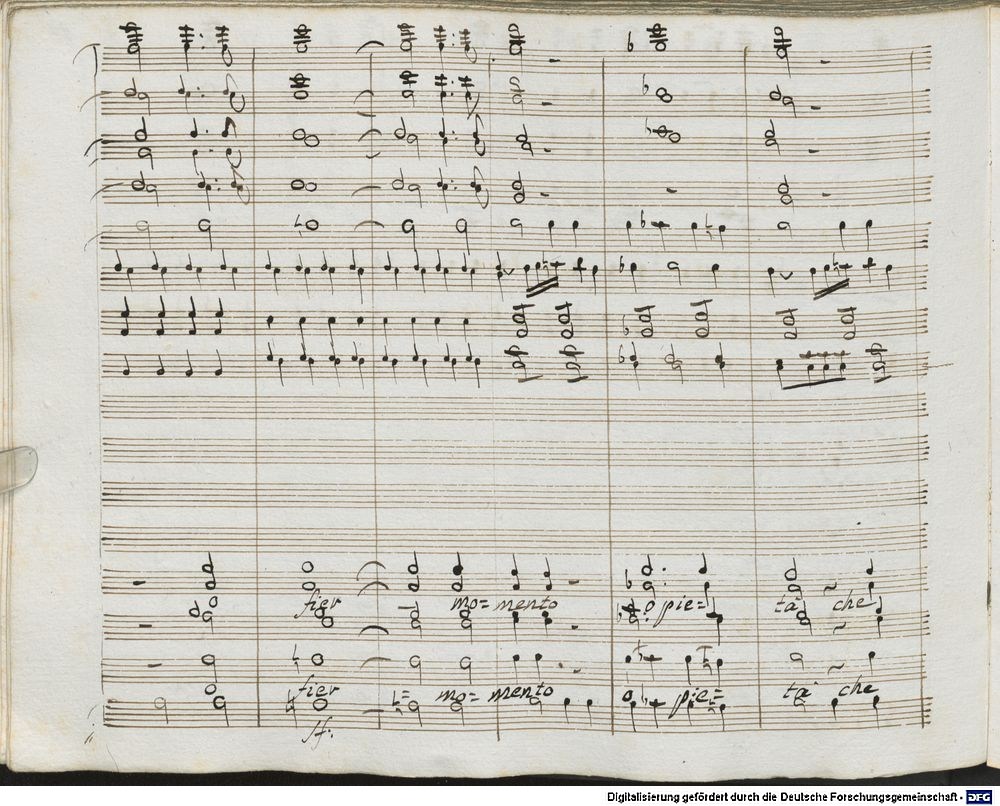 fier mo= mento o pie= tà che
fier mo= mento pie= tà che
sf.
Digitalisierung gefördert durch die Deutsche Forschungsgemeinschaft - DFG